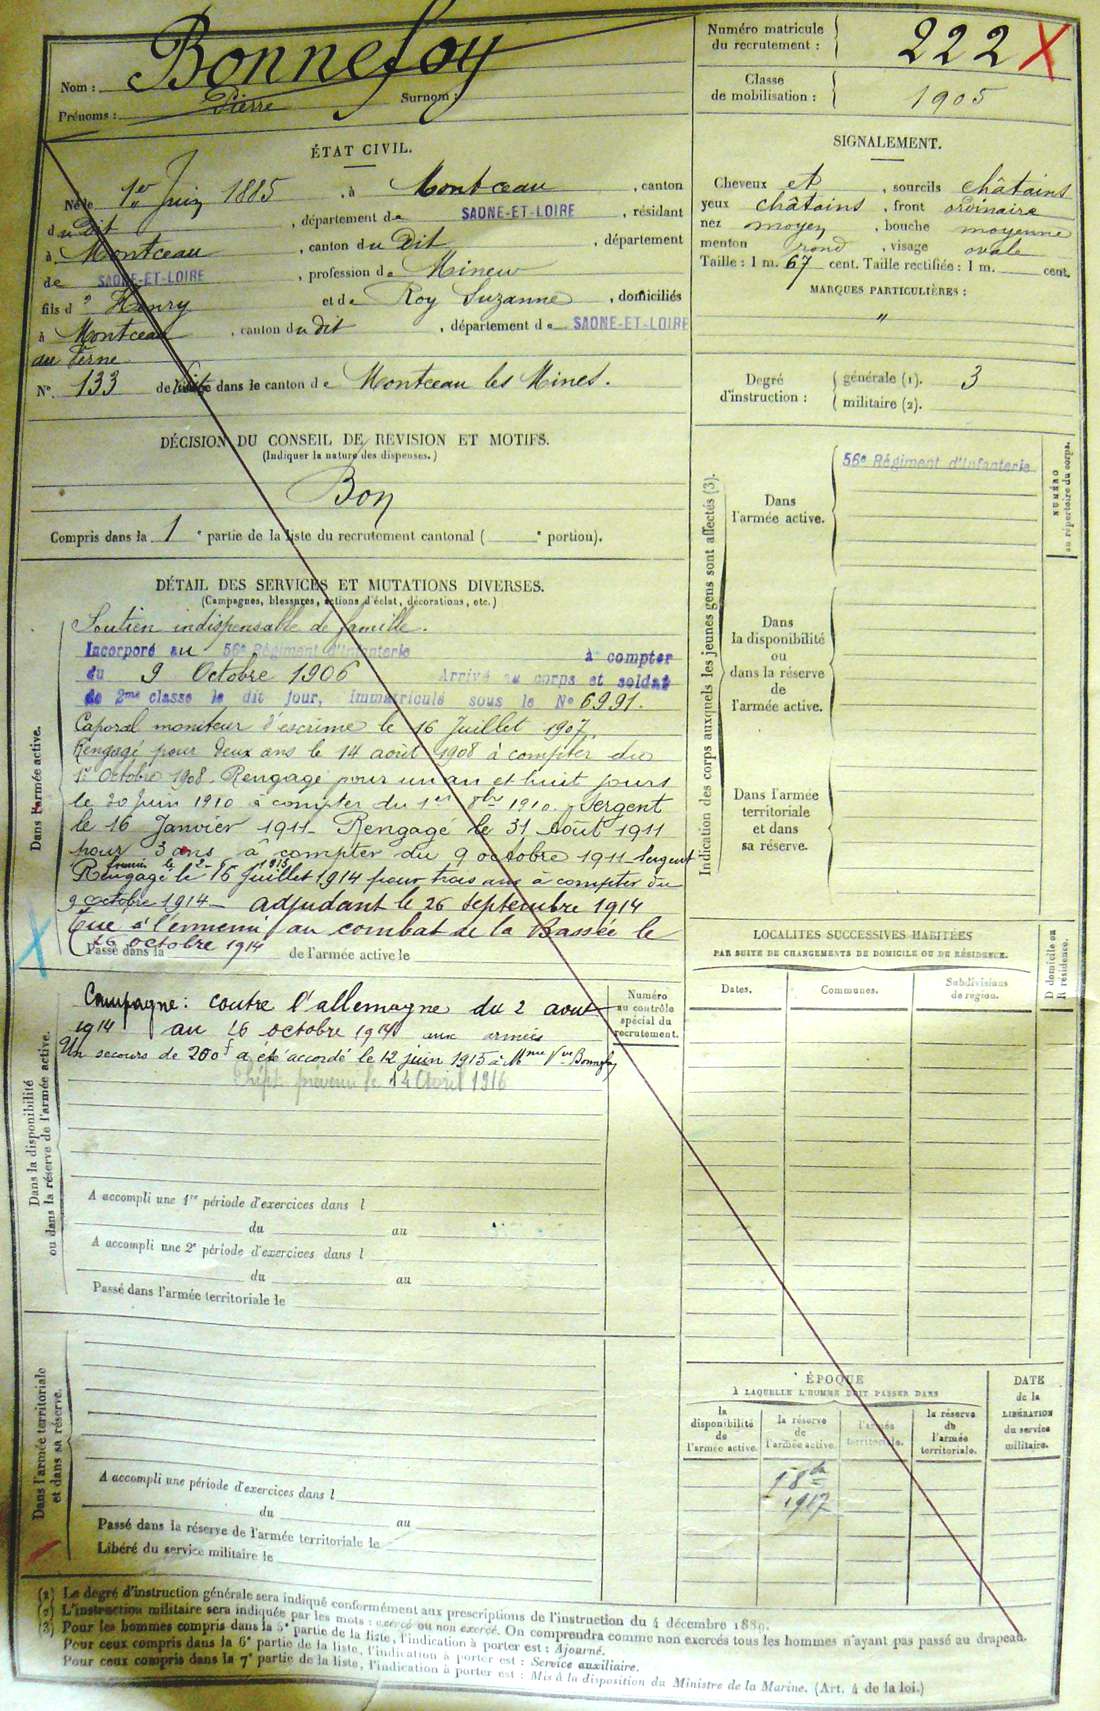 Nom : Bonnefoy
Prénoms : Pierre Surnom :
Numéro matricule du recrutement : 222 X
Classe de mobilisation : 1905
ÉTAT CIVIL.
Né le 1er Juin 1885, à Montceau, canton
du Dit, département de SAONE-ET-LOIRE, résidant
à Montceau, canton du Dit, département
de SAONE-ET-LOIRE, profession de Mineur
fils d' Henry et de Roy Suzanne, domiciliés
à Montceau, canton du dit, département de SAONE-ET-LOIRE
au Verne
N° 133 de liste dans le canton de Montceau les Mines.
SIGNALEMENT.
Cheveux et, sourcils châtains
yeux châtains, front ordinaire
nez moyen, bouche moyenne
menton rond, visage ovale
Taille : 1 m. 67 cent. Taille rectifiée : 1 m. cent.
MARQUES PARTICULIÈRES :
"
Degré d'instruction : générale (1). 3
militaire (2).
DÉCISION DU CONSEIL DE REVISION ET MOTIFS.
(Indiquer la nature des dispenses.)
Bon
Compris dans la 1e partie de la liste du recrutement cantonal ( e portion).
DÉTAIL DES SERVICES ET MUTATIONS DIVERSES.
(Campagnes, blessures, actions d'éclat, décorations, etc.)
Dans l'armée active.
Soutien indispensable de famille.
Incorporé au 56e Régiment d'Infanterie à compter
du 9 Octobre 1906 Arrivé au corps et soldat
de 2me classe le dit jour, immatriculé sous le No 6991.
Caporal moniteur d'escrime le 16 Juillet 1907.
Rengagé pour deux ans le 14 août 1908 à compter du
1er Octobre 1908. Rengagé pour un an et huit jours
le 20 Juin 1910 à compter du 1er 8bre 1910. Sergent
le 16 Janvier 1911 - Rengagé le 31 Août 1911
pour 3 ans à compter du 9 octobre 1911 Sergent
1913
Rengagé le 16 Juillet 1914 pour trois ans à compter du
9 octobre 1914 - adjudant le 26 septembre 1914
Tué à l'ennemi au combat de la Bassée le
26 octobre 1914
Passé dans la de l'armée active le
Dans la disponibilité
ou dans la réserve de l'armée active.
Campagne : contre l'allemagne du 2 août
1914 au 26 octobre 1914 aux armées
Un secours de 200f a été accordé le 12 juin 1915 à Mme Vve Bonnefoy
prévenu le 14 Avril 1916
Numéro au contrôle spécial du recrutement.
A accompli une 1re période d'exercices dans l
du au
A accompli une 2e période d'exercices dans l
du au
Passé dans l'armée territoriale le
Dans l'armée territoriale
et dans sa réserve.
A accompli une période d'exercices dans l
du au
Passé dans la réserve de l'armée territoriale le
Libéré du service militaire le
Indication des corps auxquels les jeunes gens sont affectés (3).
NUMÉRO au répertoire du corps.
Dans l'armée active.
56e Régiment d'Infanterie
Dans la disponibilité ou dans la réserve de l'armée active.
Dans l'armée territoriale et dans sa réserve.
LOCALITES SUCCESSIVES HABITÉES
PAR SUITE DE CHANGEMENTS DE DOMICILE OU DE RÉSIDENCE.
Dates. Communes. Subdivisions de région. D domicile ou R résidence.
ÉPOQUE
À LAQUELLE L'HOMME DOIT PASSER DANS
la disponibilité de l'armée active.
la réserve de l'armée active.
l'armée territoriale.
la réserve de l'armée territoriale.
DATE de la LIBÉRATION du service militaire.
1917
(1) Le degré d'instruction générale sera indiqué conformément aux prescriptions de l'instruction du 4 décembre 1889.
(2) L'instruction militaire sera indiquée par les mots : exercé ou non exercé. On comprendra comme non exercés tous les hommes n'ayant pas passé au drapeau.
(3) Pour les hommes compris dans la 5e partie de la liste, l'indication à porter est : Ajourné.
Pour ceux compris dans la 6e partie de la liste, l'indication à porter est : Service auxiliaire.
Pour ceux compris dans la 7e partie de la liste, l'indication à porter est : Mis à la disposition du Ministre de la Marine. (Art. 4 de la loi.)